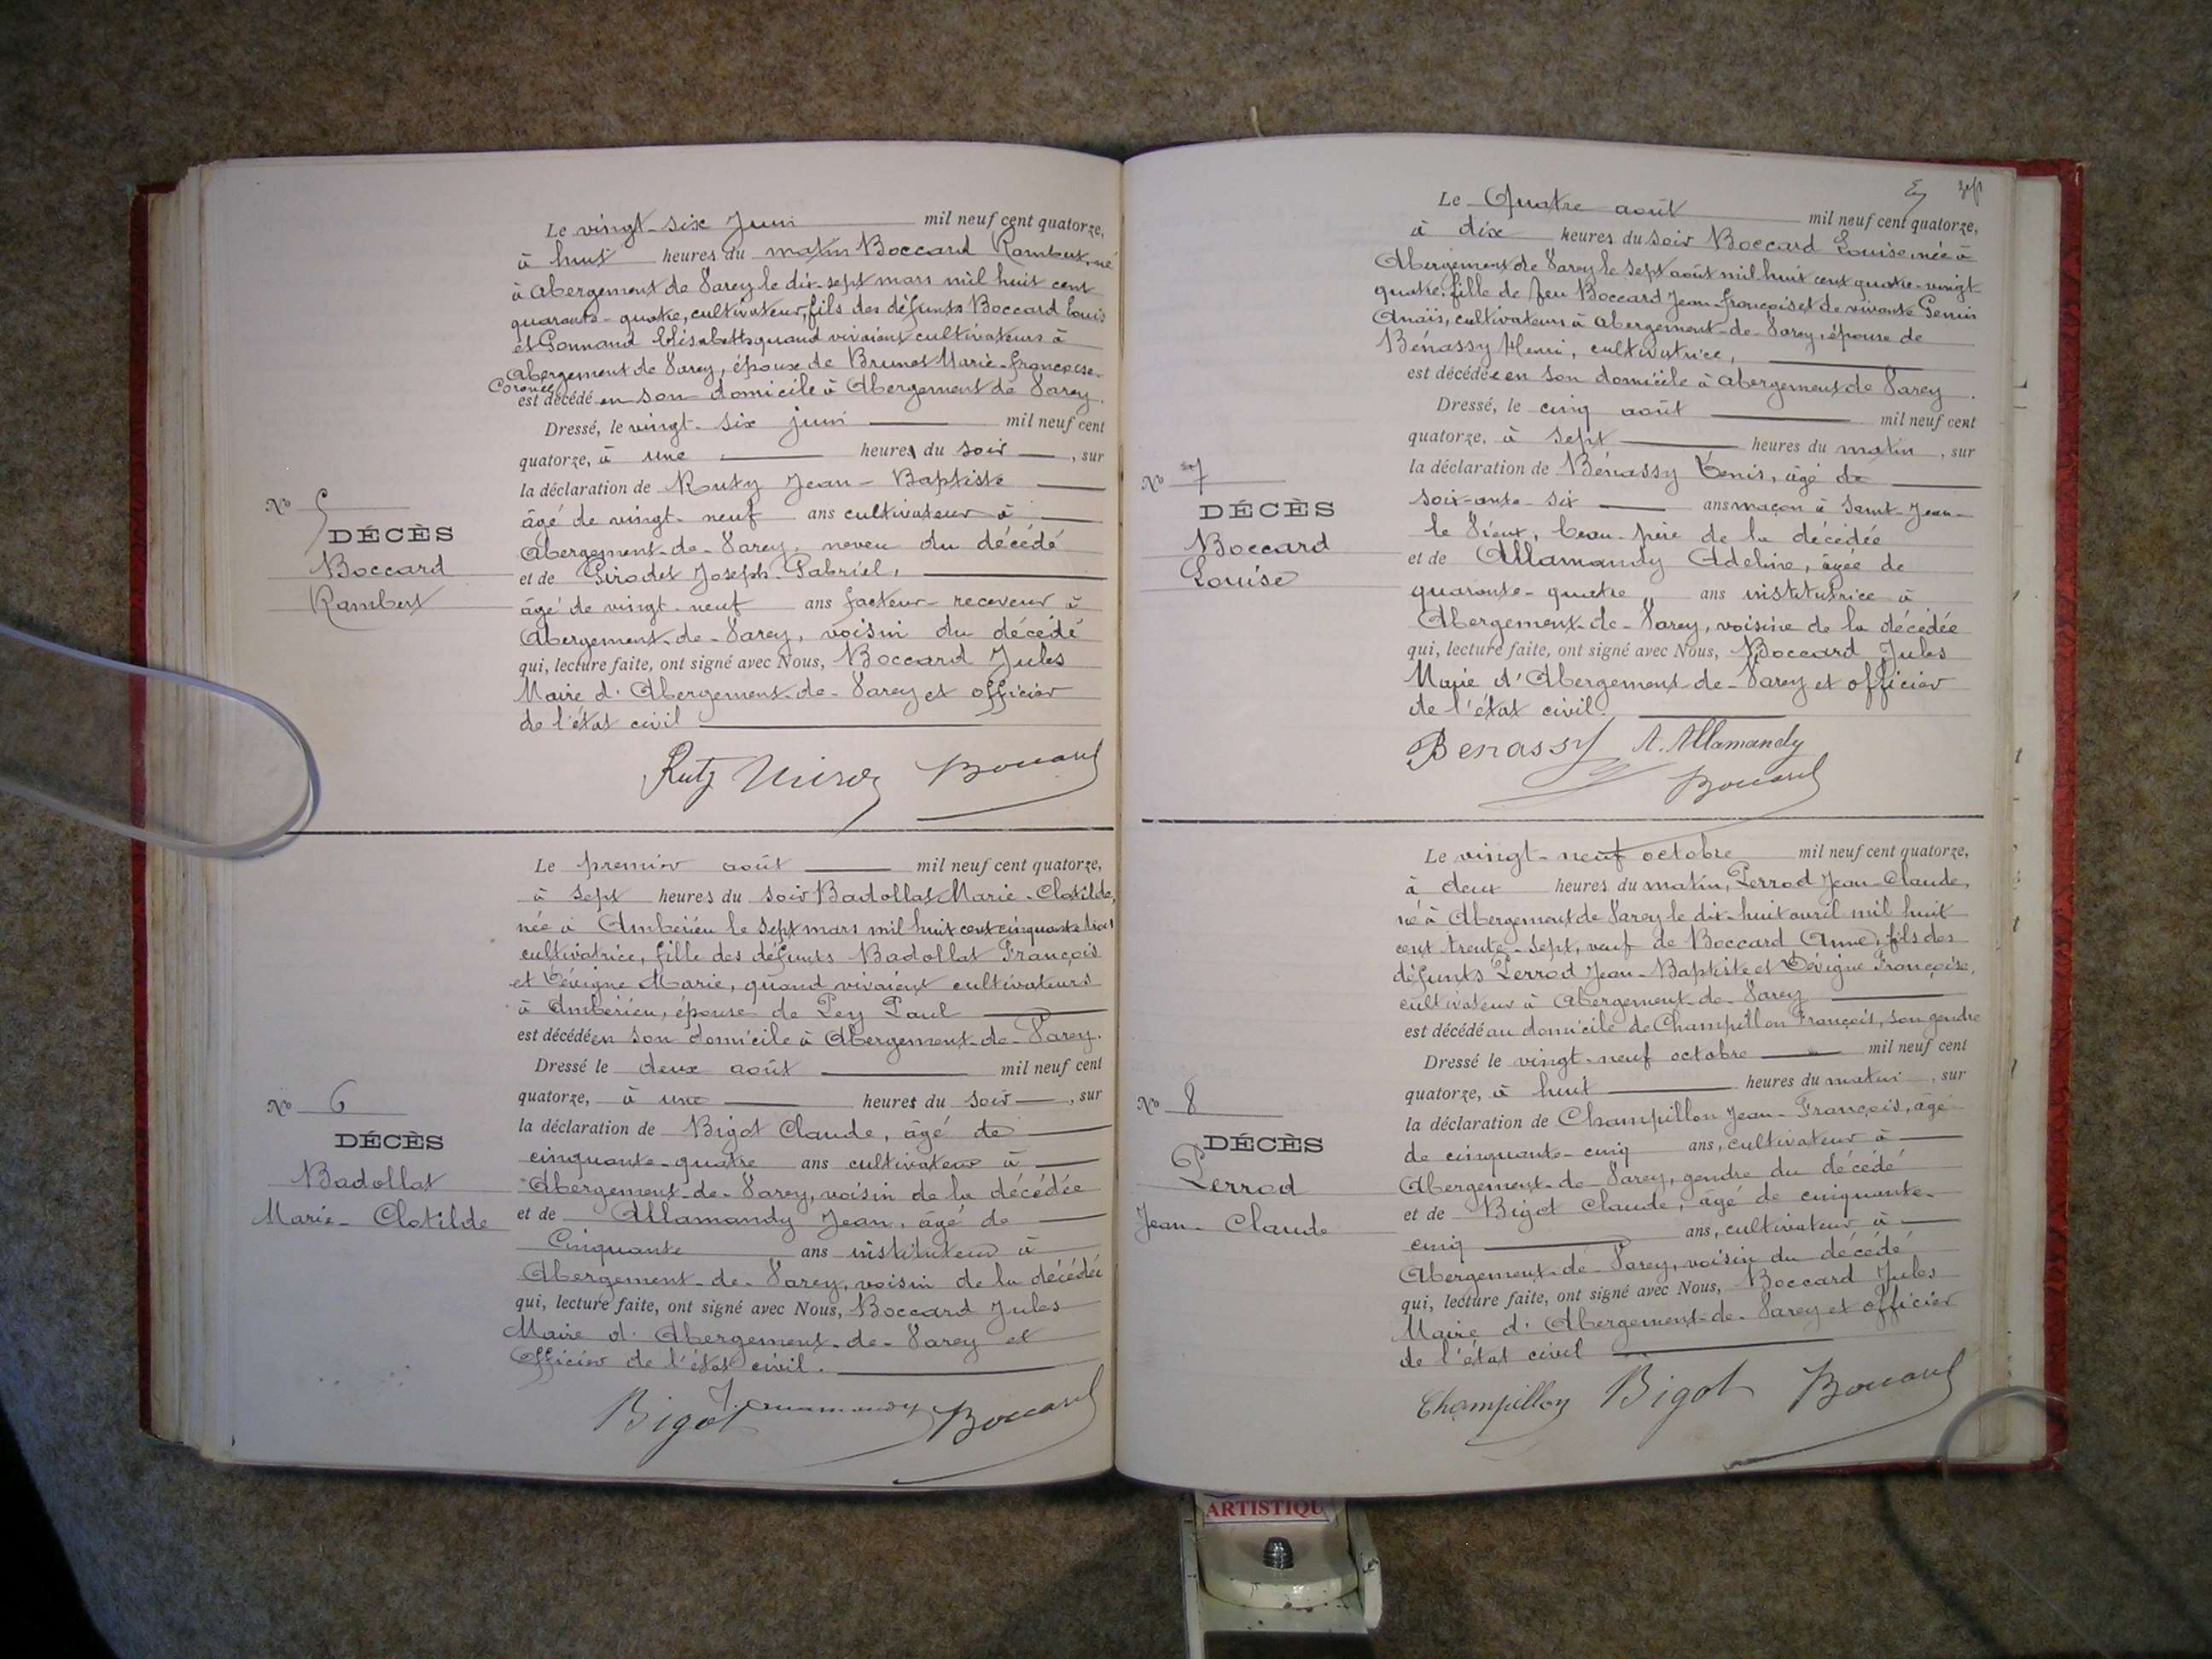 Le vingt-six Juin mil neuf cent quatorze,
à huit heures du matin Boccard Rambert, né
à Abergement de Varey le dix-sept mars mil huit cent
quarante-quatre, cultivateur, fils des défunts Boccard Louis
et Gonnand Elisabeth quand vivaient cultivateurs à
Abergement de Varey, époux de Brunet Marie-Françoise-
est décédé en son domicile à Abergement de Varey.
Dressé, le vingt-six juin mil neuf cent
quatorze, à une heures du soir, sur
la déclaration de Ruty Jean-Baptiste
âgé de vingt-neuf ans cultivateur à
Abergement-de-Varey, neveu du décédé
et de Girodet Joseph-Gabriel,
âgé de vingt-neuf ans facteur-receveur à
Abergement-de-Varey, voisin du décédé
qui, lecture faite, ont signé avec Nous, Boccard Jules
Maire d'Abergement-de-Varey et officier
de l'état civil
Nº 5
DÉCÈS
Boccard
Rambert
Ruty Boccard
Le premier août mil neuf cent quatorze,
à sept heures du soir Badollat Marie-Clotilde,
née à Ambérieu le sept mars mil huit cent cinquante trois
cultivatrice, fille des défunts Badollat François
et Dévigne Marie, quand vivaient cultivateurs
à Ambérieu, épouse de Pey Paul
est décédée en son domicile à Abergement-de-Varey.
Dressé le deux août mil neuf cent
quatorze, à une heures du soir, sur
la déclaration de Bigot Claude, âgé de
cinquante-quatre ans cultivateur à
Abergement-de-Varey, voisin de la décédée
et de Allamandy Jean, âgé de
Cinquante ans instituteur à
Abergement-de-Varey, voisin de la décédée
qui, lecture faite, ont signé avec Nous, Boccard Jules
Maire d'Abergement-de-Varey et
Officier de l'état civil.
Nº 6
DÉCÈS
Badollat
Marie-Clotilde
Bigot J. Allamandy Boccard
Le Quatre août mil neuf cent quatorze,
à dix heures du soir Boccard Louise, née à
Abergement de Varey le sept août mil huit cent quatre-vingt
quatre, fille de feu Boccard Jean-François et de vivante Genin
Anaïs, cultivateurs à Abergement-de-Varey, épouse de
Bénassy Henri, cultivatrice,
est décédée en son domicile à Abergement de Varey.
Dressé, le cinq août mil neuf cent
quatorze, à sept heures du matin, sur
la déclaration de Bénassy Denis, âgé de
soixante-six ans maçon à Saint-Jean-
le Vieux, beau-père de la décédée
et de Allamandy Adeline, âgée de
quarante-quatre ans institutrice à
Abergement-de-Varey, voisine de la décédée
qui, lecture faite, ont signé avec Nous, Boccard Jules
Maire d'Abergement-de-Varey et officier
de l'état civil.
Nº 7
DÉCÈS
Boccard
Louise
Benassy A. Allamandy
Boccard
Le vingt-neuf octobre mil neuf cent quatorze,
à deux heures du matin, Perrod Jean-Claude,
né à Abergement de Varey le dix-huit avril mil huit
cent trente-sept, veuf de Boccard Anne, fils des
défunts Perrod Jean-Baptiste et Dévigne Françoise,
cultivateur à Abergement-de-Varey
est décédé au domicile de Champillon François, son gendre
Dressé le vingt-neuf octobre mil neuf cent
quatorze, à huit heures du matin, sur
la déclaration de Champillon Jean-François, âgé
de cinquante-cinq ans, cultivateur à
Abergement-de-Varey, gendre du décédé
et de Bigot Claude, âgé de cinquante-
cinq ans, cultivateur à
Abergement-de-Varey, voisin du décédé
qui, lecture faite, ont signé avec Nous, Boccard Jules
Maire d'Abergement-de-Varey et officier
de l'état civil
Nº 8
DÉCÈS
Perrod
Jean-Claude
Champillon Bigot Boccard
ARTISTIQU